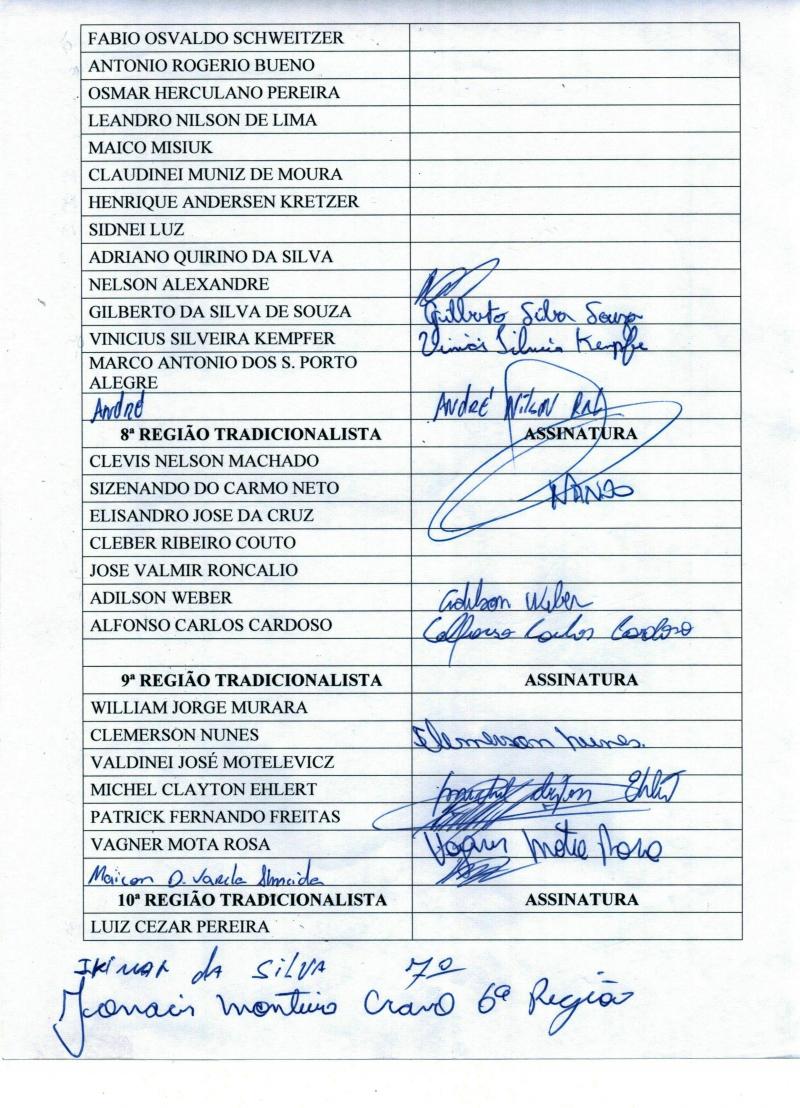 FABIO OSVALDO SCHWEITZER
ANTONIO ROGERIO BUENO
OSMAR HERCULANO PEREIRA
LEANDRO NILSON DE LIMA
MAICO MISIUK
CLAUDINEI MUNIZ DE MOURA
HENRIQUE ANDERSEN KRETZER
SIDNEI LUZ
ADRIANO QUIRINO DA SILVA
NELSON ALEXANDRE
GILBERTO DA SILVA DE SOUZA Gilberto Silva Souza
VINICIUS SILVEIRA KEMPFER Kempfe
MARCO ANTONIO DOS S. PORTO
ALEGRE
André André Nilson
8ª REGIÃO TRADICIONALISTA ASSINATURA
CLEVIS NELSON MACHADO
SIZENANDO DO CARMO NETO NANDO
ELISANDRO JOSE DA CRUZ
CLEBER RIBEIRO COUTO
JOSE VALMIR RONCALIO
ADILSON WEBER Adilson Weber
ALFONSO CARLOS CARDOSO Carlos Cardoso
9ª REGIÃO TRADICIONALISTA ASSINATURA
WILLIAM JORGE MURARA
CLEMERSON NUNES Clemerson Nunes.
VALDINEI JOSÉ MOTELEVICZ
MICHEL CLAYTON EHLERT Ehlert
PATRICK FERNANDO FREITAS
VAGNER MOTA ROSA Vagner Mota Rosa
Maicon D. Varela Almeida
10ª REGIÃO TRADICIONALISTA ASSINATURA
LUIZ CEZAR PEREIRA
da SILVA 7ª
Monteiro Cravo 6ª Região